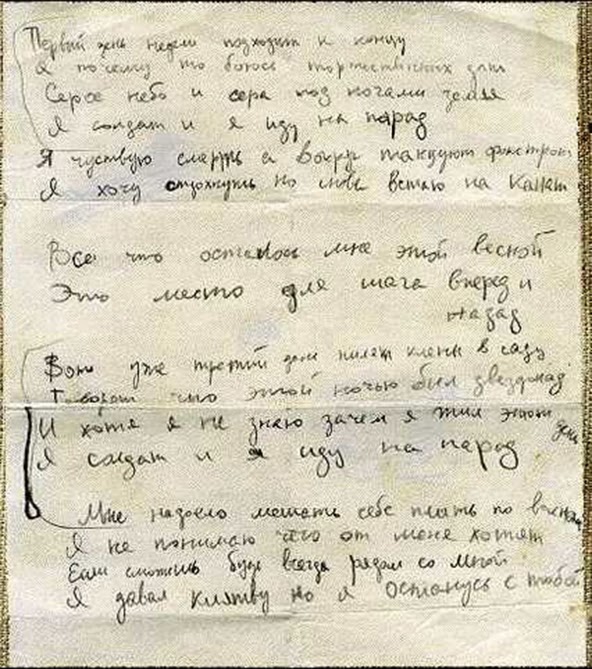 Первый день недели подходит к концу
а почему то боюсь торжественных дат
Серое небо и сера под ногами земля
Я солдат и я иду на парад
Я чуствую смерть а вокруг танцуют фокстрот
Я хочу отдохнуть но снова встаю на канат
Все что осталось мне этой весной
Это место для шага вперед и
назад
Вот уже третий день пилят клены в саду
Говорят что этой ночью был звездопад
И хотя я не знаю зачем я жил этот день
Я солдат и я иду на парад
Мне надоело мешать себе плыть по волнам
Я не понимаю чего от меня хотят
Если сможешь будь всегда рядом со мной
Я давал клятву но я останусь с тобой